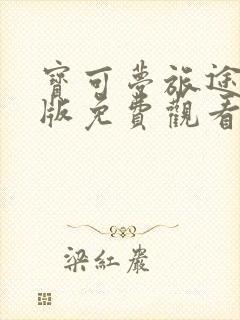 寶可夢旅途
版免費觀看
梁紅嚴